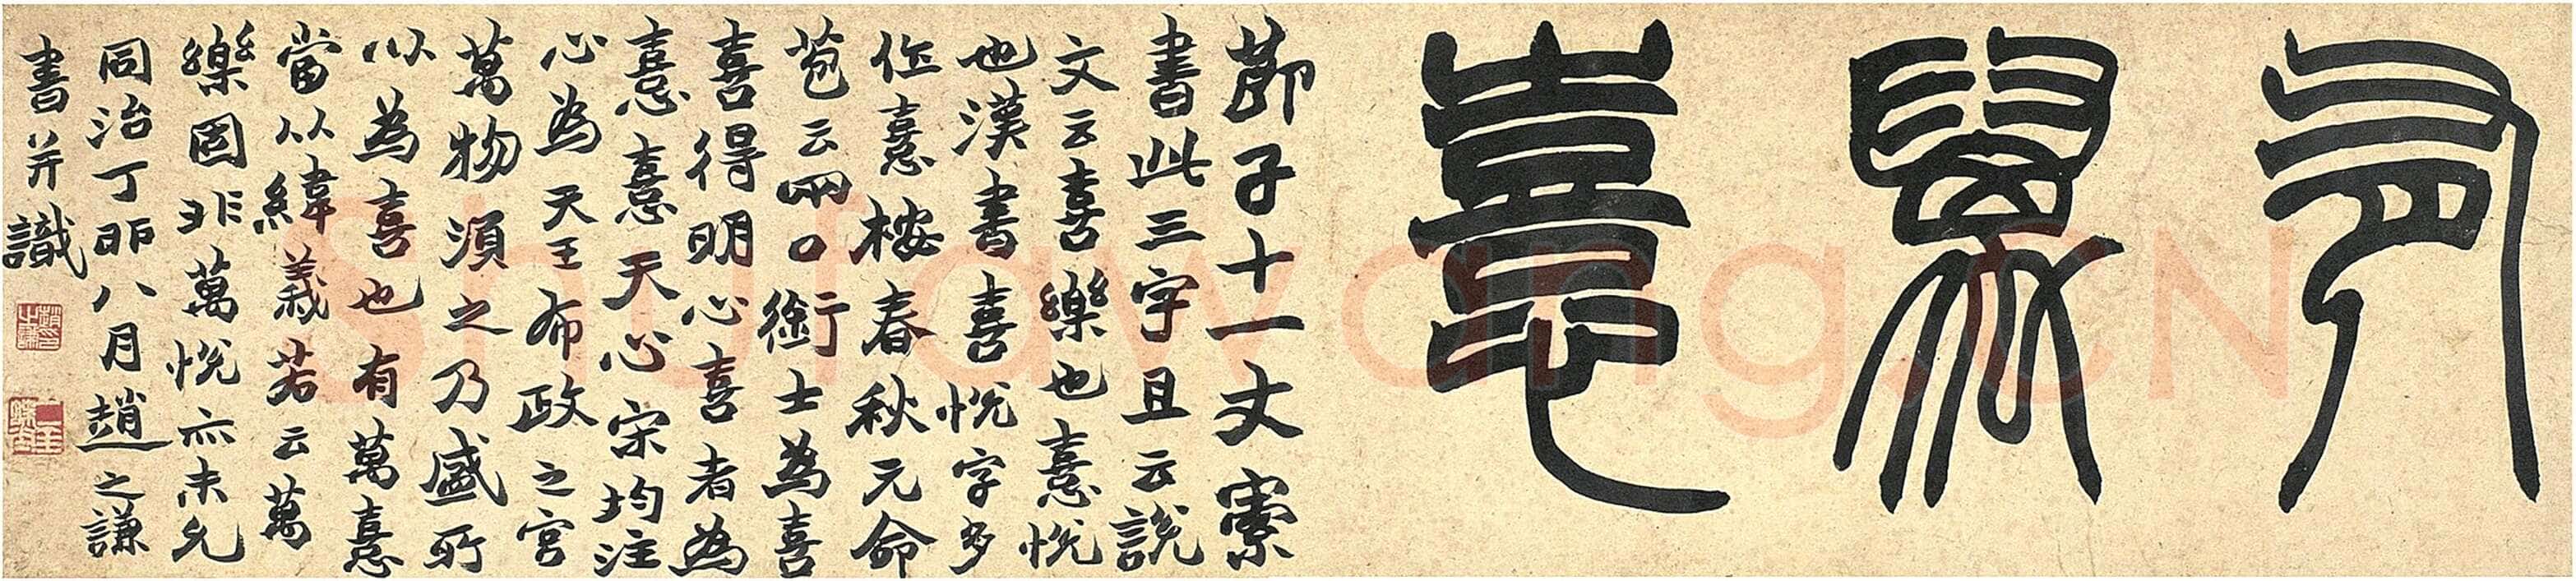 有萬憙
莭子十一丈索
書此三字且云說
文云喜樂也憙悅
也漢書喜悅字多
作憙桉春秋元命
苞云兩口銜士為喜
喜得明心喜者為
憙憙天心宋均注
心為天王布政之宮
萬物須之乃盛所
以為喜也有萬憙
當以緯義若云萬
樂圖非萬悅亦未允
同治丁卯八月趙之謙
書并識
Shufawang.CN